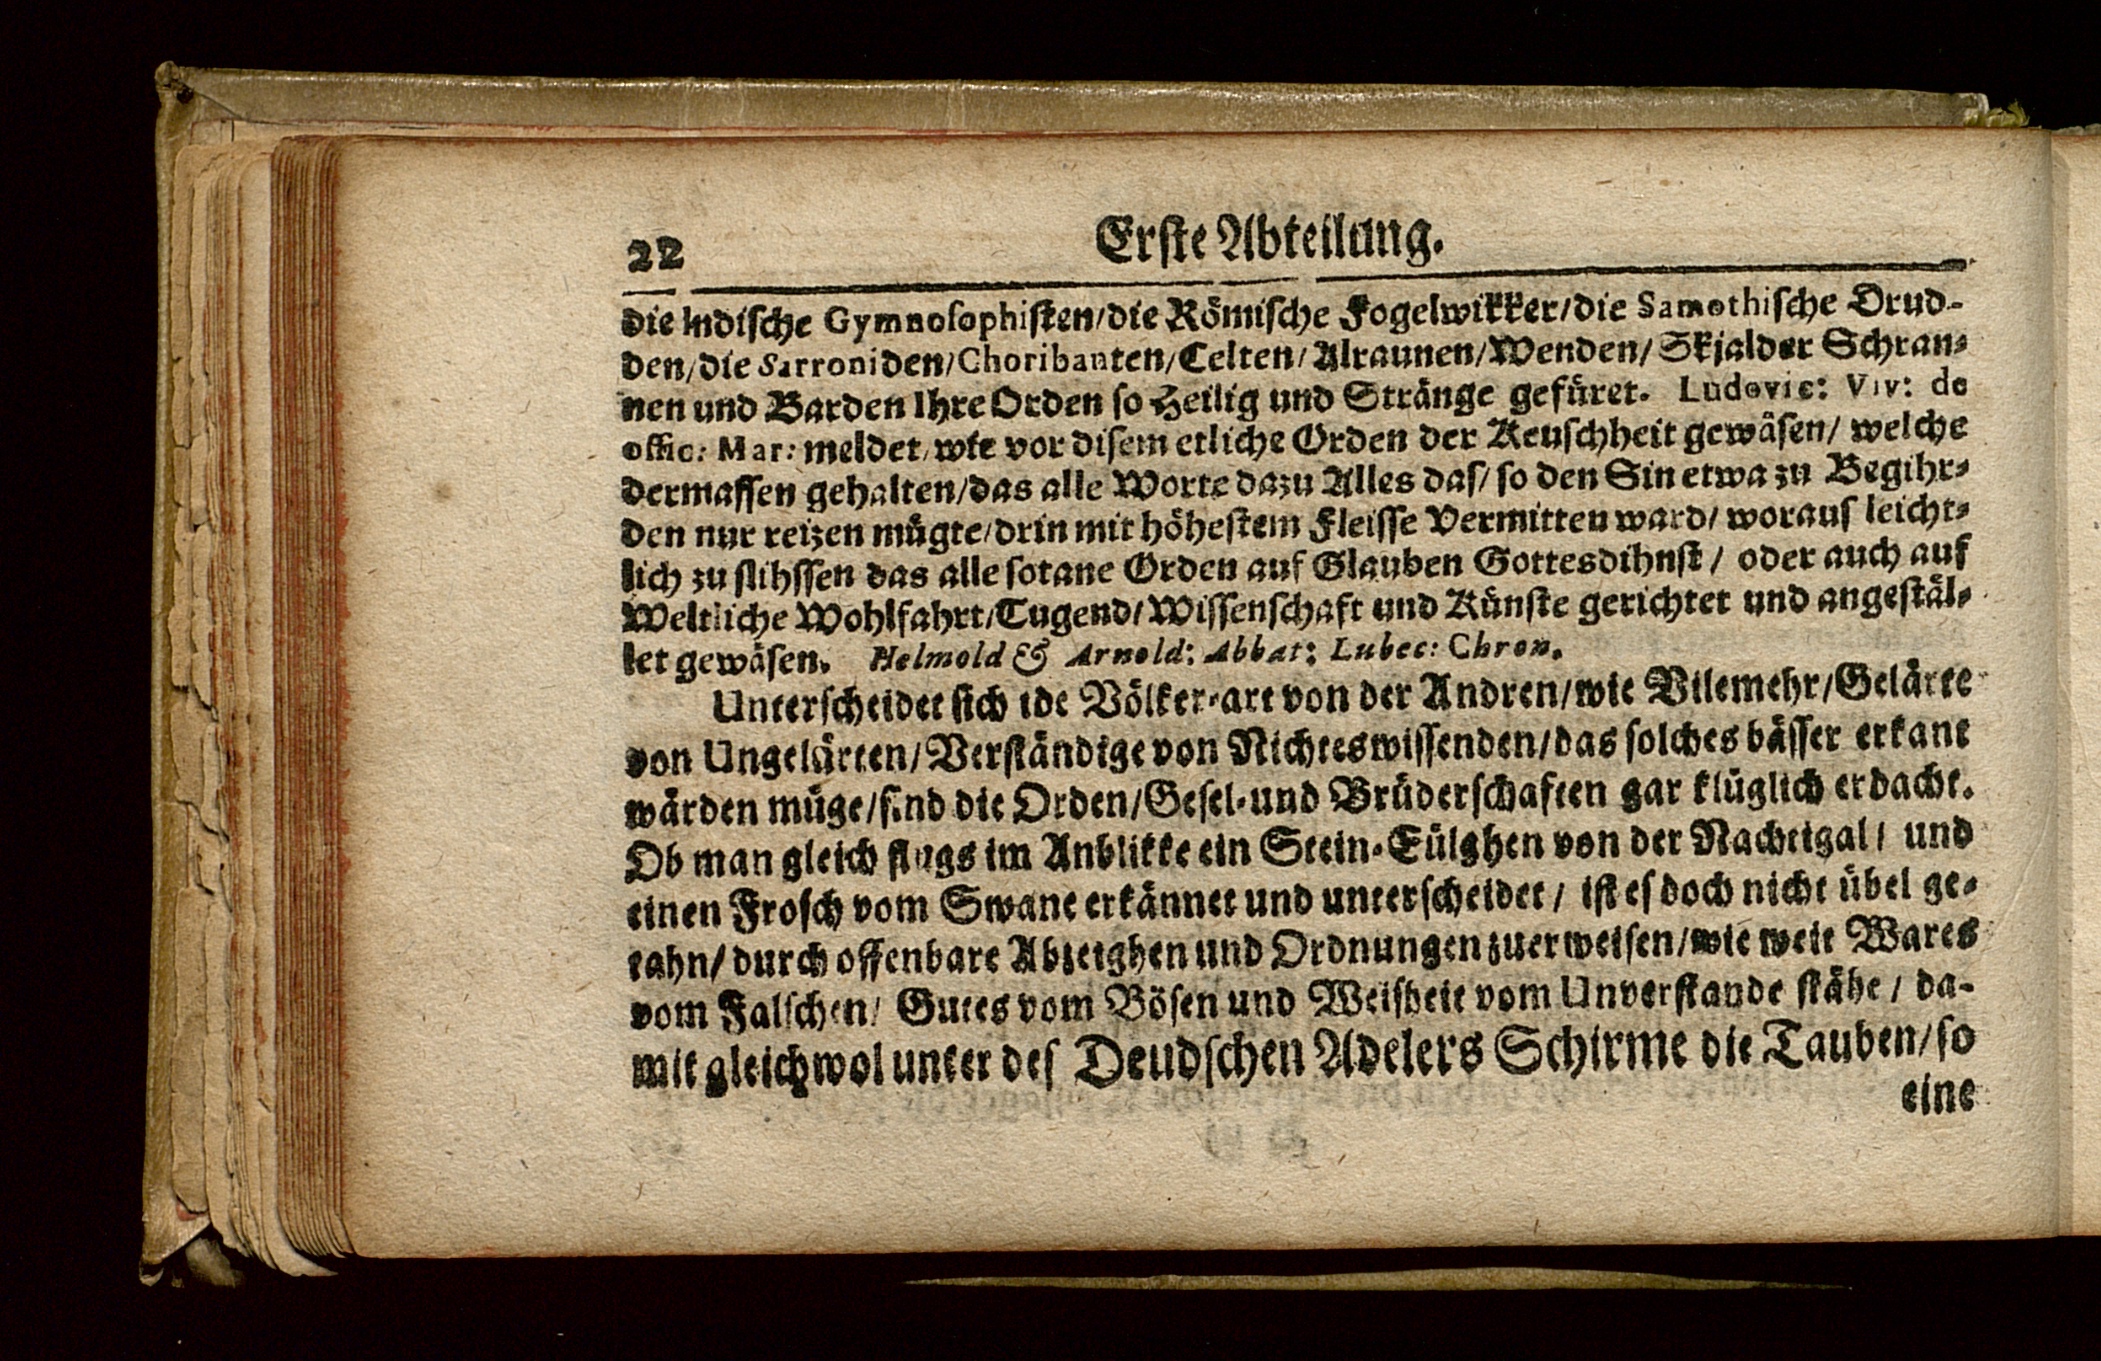 22 Erste Abteilung.
die Indische Gymnosophisten/die Römische Fogelwikker/die Samothische Drud-
den/die Sarroniden/Choribanten/Celten/Alraunen/Wenden/Skjalder Schran-
nen und Barden Ihre Orden so Heilig und Stränge gefüret. Ludovic: Viv: de
offic: Mar: meldet, wie vor disem etliche Orden der Keuschheit gewäsen/ welche
dermassen gehalten/das alle Worte dazu Alles das/ so den Sin etwa zu Begihr-
den nur reizen mügte/drin mit höhestem Fleisse Vermitten ward/ woraus leicht-
lich zu slihssen das alle sotane Orden auf Glauben Gottesdihnst/ oder auch auf
Weltliche Wohlfahrt/Tugend/Wissenschaft und Künste gerichtet und angestäl-
let gewäsen. Helmold & Arnold: Abbat: Lubec: Chron.
Unterscheidet sich ide Völker-art von der Andren/wie Vilemehr/Gelärte
von Ungelärten/Verständige von Nichteswissenden/das solches bässer erkant
wärden müge/sind die Orden/Gesel-und Brüderschaften gar klüglich erdacht.
Ob man gleich flugs im Anblikke ein Stein-Eülghen von der Nachtigal/ und
einen Frosch vom Swane erkännet und unterscheidet/ ist es doch nicht übel ge-
tahn/durch offenbare Abzeighen und Ordnungen zuerweisen/wie weit Wares
vom Falschen/ Gutes vom Bösen und Weisheit vom Unverstande stähe/ da-
mit gleichwol unter des Deudschen Adelers Schirme die Tauben/so
eine